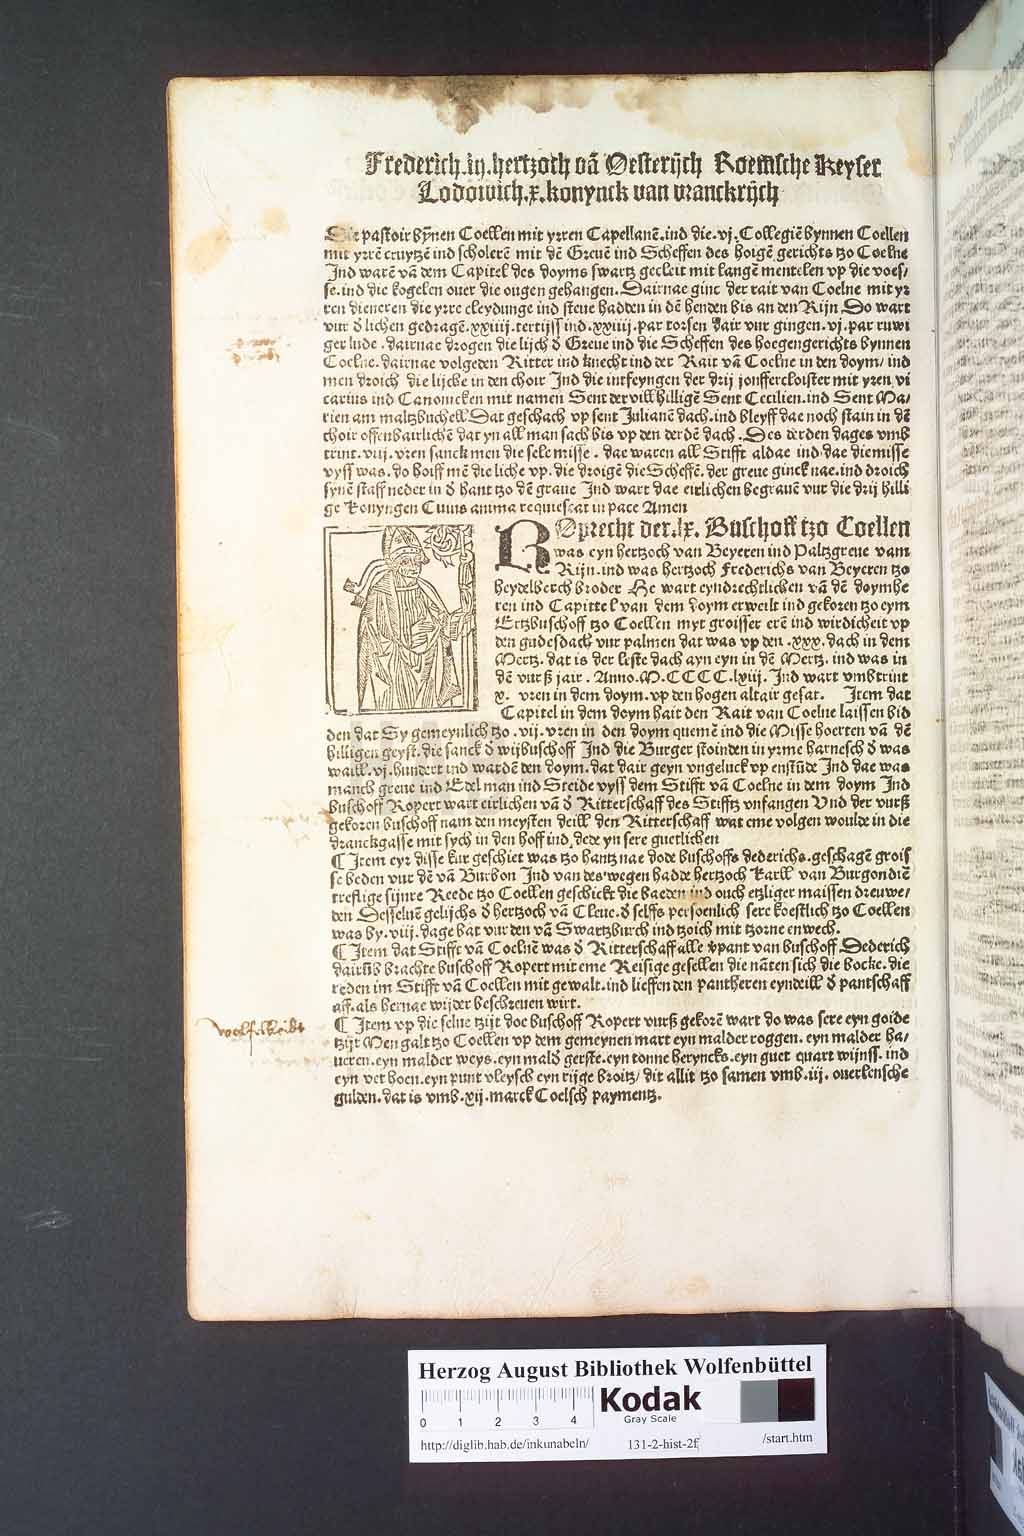 Frederich.iij.hertzoch vã Oesterijch Roemsche Keyser
Lodowich.x.konynck van vranckrijch
Die pastoir bynen Coellen mit yrren Capellanẽ.ind die.vj.Collegiẽ bynnen Coellen
mit yrrẽ cruytzẽ ind scholerẽ mit dẽ Greuẽ ind Scheffen des hoigẽ gerichts tzo Coelne
Ind warẽ vã dem Capitel des doyms swartz gecleit mit langẽ mentelen vp die voes/
se.ind die kogelen ouer die ougen gehangen. Dairnae ginc der rait van Coelne mit yr
ren dieneren die yrre cleydunge ind steue hadden in dẽ henden bis an den Rijn. Do wart
vur d̓ lichen gedragẽ.xxiiij.tertijss ind.xxiiij.par torsen dair vur gingen.vj.par ruwi
ger lude. dairnae drogen die lijch d̓ Greue ind die Scheffen des hoegengerichts bynnen
Coelne. dairnae volgeden Ritter ind knecht ind der Rait vã Coelne in den doym/ ind
men droich die lijche in den choir Ind die intfeyngen der drij jonffercloister mit yren vi
carius ind Canonicken mit namen Sent der vill hilligẽ Sent Cecilien.ind Sent Ma/
rien am maltzbuchell Dat geschach vp sent Julianẽ dach.ind bleyff dae noch stain in dẽ
choir offenbairlichẽ dat yn all man sach bis vp den derdẽ dach. Des derden dages vmb
trint.viij.vren sanck men die sele misse. dae waren all Stifft aldae ind dae die misse
vyss was. do hoiff mẽ die liche vp. die droigẽ die Scheffẽ. der greue ginck nae.ind droich
synẽ staff neder in d̓ hant tzo dẽ graue Ind wart dae eirlichen begrauẽ vur die drij hilli
ge Konyngen Cuius anima requiescat in pace Amen
ROprecht der.lx. Buschoff tzo Coellen
was eyn hertzoch van Beyeren ind Paltzgreue vam
Rijn.ind was hertzoch Frederichs van Beyeren tzo
heydelberch broder He wart eyndrechtlichen vã dẽ doymhe
ren ind Capittel van dem doym erwelt ind gekoren tzo eym
Ertzbuschoff tzo Coellen myt groisser erẽ ind wirdicheit vp
den gudesdach vur palmen dat was vp den.xxx.dach in dem
Mertz. dat is der leste dach ayn eyn in dẽ Mertz. ind was in
dẽ vurß jair. Anno.M.CCCC.lxiij. Ind wart vmbtrint
x. vren in dem doym.vp den hogen altair gesat. Item dat
Capitel in dem doym hait den Rait van Coelne laissen bid
den dat Sy gemeynlich tzo.vij.vren in den doym quemẽ ind die Misse hoerten vã dẽ
hilligen geyst. die sanck d̓ wijbuschoff Ind die Burger stoinden in yrme harnesch d̓ was
waill.vj.hundert ind wardẽ den doym.dat dair geyn vngeluck vp enstũde Ind dae was
manch greue ind Edelman ind Steide vyss dem Stifft vã Coelne in dem doym Ind
buschoff Ropert wart eirlichen vã d̓ Ritterschaff des Stifftz vnfangen Vnd der vurß
gekoren buschoff nam den meysten deill den Ritterschaff wat eme volgen woulde in die
dranckgasse mit sych in den hoff ind dede yn sere guetlichen
¶ Item eyr disse kur geschiet was tzo hantz nae dode buschoffs dederichs.geschagẽ grois
se beden vur dẽ vã Burbon Ind van des wegen hadde hertzoch Karll van Burgondiẽ
treflige sijnre Reede tzo Coellen geschickt die baeden ind ouch etzliger maissen dreuwe/
den Desseluẽ gelijchs d̓ hertzoch vã Cleue.d̓ selffs persoenlich sere koestlich tzo Coellen
was by.viij.dage bat vur den vã Swartzburch ind tzoich mit tzorne enwech.
¶ Item dat Stifft vã Coelnẽ was d̓ Ritterschaff alle v̓pant van buschoff Dederich
dairũb brachte buschoff Ropert mit eme Reisige gesellen die nãten sich die bocke. die
reden im Stifft vã Coellen mit gewalt.ind lieffen den pantheren eyndeill d̓ pantschaff
aff.als hernae wijder beschreuen wirt.
¶ Item vp die selue tzijt doe buschoff Ropert vurß gekorẽ wart do was sere eyn goide
tzijt Men galt tzo Coellen vp dem gemeynen mart eyn malder roggen. eyn malder ha/
ueren.eyn malder weys.eyn mald̓ gerste.eyn tonne heryncks.eyn guet quart wijnss. ind
eyn vet hoen.eyn punt vleysch eyn rijge broitz/ dit allit tzo samen vmb.iij. ouerlensche
gulden. dat is vmb.xij.marck Coelsch paymentz.
Herzog August Bibliothek Wolfenbüttel
0 1 2 3 4
Kodak
Gray Scale
http://diglib.hab.de/inkunabeln/ 131-2-hist-2f /start.htm